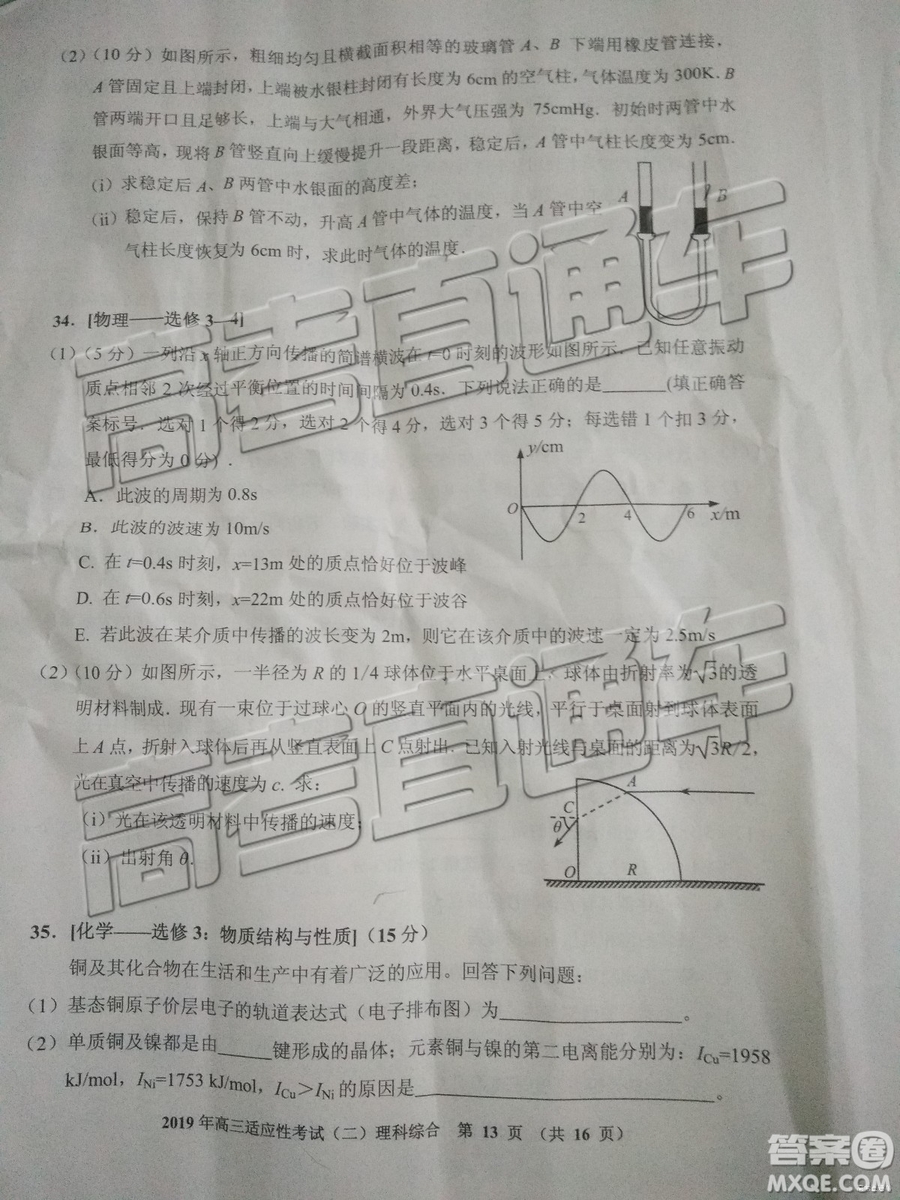 (2)(10 分)如图所示，粗细均匀且横截面积相等的玻璃管 A、B 下端用橡皮管连接，
A 管固定且上端封闭，上端被水银柱封闭有长度为 6cm 的空气柱，气体温度为 300K. B
管两端开口且足够长，上端与大气相通，外界大气压强为 75cmHg．初始时两管中水
银面等高，现将 B 管竖直向上缓慢提升一段距离，稳定后，A 管中气柱长度变为 5cm.
(i) 求稳定后 A、B 两管中水银面的高度差；
(ii) 稳定后，保持 B 管不动，升高 A 管中气体的温度，当 A 管中空
气柱长度恢复为 6cm 时，求此时气体的温度．
A
B
34．[物理——选修 3—4]
(1)(5 分)一列沿 x 轴正方向传播的简谐横波在 t=0 时刻的波形如图所示．已知任意振动
质点相邻 2 次经过平衡位置的时间间隔为 0.4s．下列说法正确的是______(填正确答
案标号．选对 1 个得 2 分，选对 2 个得 4 分，选对 3 个得 5 分；每选错 1 个扣 3 分，
最低得分为 0 分)．
A．此波的周期为 0.8s
B．此波的波速为 10m/s
C. 在 t=0.4s 时刻，x=13m 处的质点恰好位于波峰
D. 在 t=0.6s 时刻，x=22m 处的质点恰好位于波谷
E. 若此波在某介质中传播的波长变为 2m，则它在该介质中的波速一定为 2.5m/s
y/cm
O
2
4
6
x/m
(2)(10 分)如图所示，一半径为 R 的 1/4 球体位于水平桌面上，球体由折射率为√3的透
明材料制成．现有一束位于过球心 O 的竖直平面内的光线，平行于桌面射到球体表面
上 A 点，折射入球体后再从竖直表面上 C 点射出．已知入射光线与桌面的距离为√3R/2，
光在真空中传播的速度为 c. 求：
(i) 光在该透明材料中传播的速度；
(ii) 出射角 θ.
A
C
θ
O
R
35．[化学——选修 3：物质结构与性质]（15 分）
铜及其化合物在生活和生产中有着广泛的应用。回答下列问题：
（1）基态铜原子价层电子的轨道表达式（电子排布图）为________________。
（2）单质铜及镍都是由_____键形成的晶体；元素铜与镍的第二电离能分别为：ICu=1958
kJ/mol，INi=1753 kJ/mol，ICu＞INi 的原因是________________
2019 年高三适应性考试（二）理科综合 第 13 页 （共 16 页）
高考直通车
高考直通车
答案圈
MXQE.COM